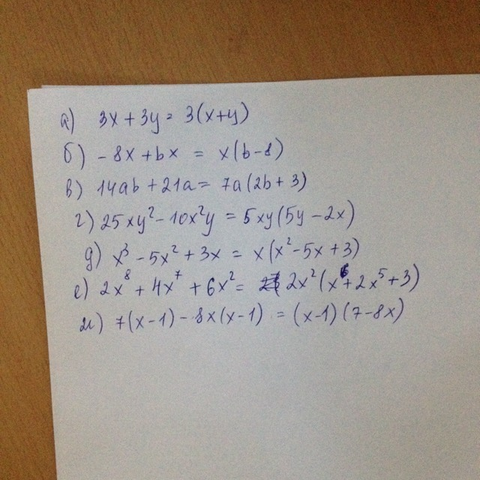 а) 3x + 3y = 3(x+y)
б) -8x + bx = x(b-8)
в) 14ab + 21a = 7a(2b+3)
г) 25xy² - 10x²y = 5xy(5y-2x)
д) x³ - 5x² + 3x = x(x² - 5x + 3)
е) 2x⁸ + 4x⁷ + 6x² = 2x²(x⁶ + 2x⁵ + 3)
ж) 7(x-1) - 8x(x-1) = (x-1)(7-8x)